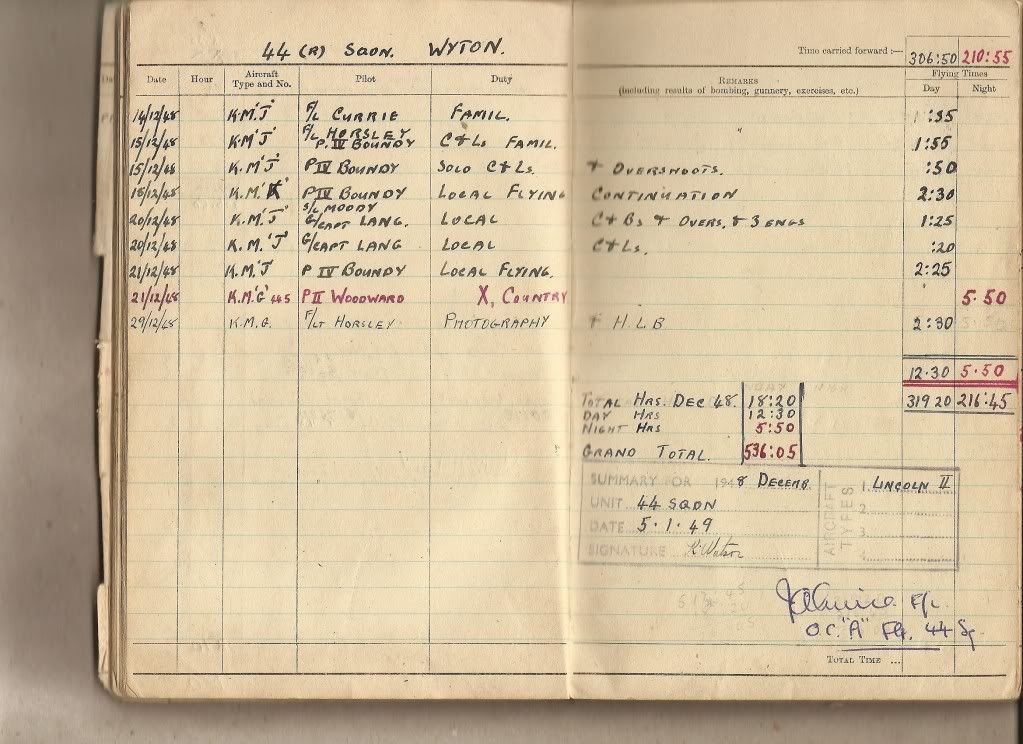 44 (R) SQDN. WYTON.
Time carried forward :— 306:50 210:55
Date Hour Aircraft Type and No. Pilot Duty REMARKS (including results of bombing, gunnery, exercises, etc.) Flying Times Day Night
14/12/48 K.M.'J' F/L CURRIE FAMIL. 1:35
15/12/48 K.M.'J' F/L HORSLEY P.IV BOUNDY C&Ls FAMIL. 1:55
15/12/48 K.M.'J' P IV BOUNDY SOLO C&Ls. + OVERSHOOTS. :50
18/12/48 K.M.'K' P IV BOUNDY LOCAL FLYING CONTINUATION 2:30
20/12/48 K.M.'J' S/L MOODY G/CAPT LANG. LOCAL C&Bs & OVERS. & 3 ENGS 1:25
20/12/48 K.M.'J' G/CAPT LANG LOCAL C&Ls. :20
21/12/48 K.M.'J' P IV BOUNDY LOCAL FLYING. 2:25
21/12/48 K.M.'G' 445 P II WOODWARD X, COUNTRY 5.50
29/12/48 K.M.G. F/LT HORSLEY PHOTOGRAPHY + H.L.B 2:30
12.30 5.50
TOTAL HRS. DEC 48. 18:20 319 20 216.45
DAY HRS 12:30
NIGHT HRS 5:50
GRAND TOTAL. 536:05
SUMMARY FOR 1948 DECEMB
UNIT 44 SQDN
DATE 5.1.49
SIGNATURE K Watson
AIRCRAFT TYPES
1. LINCOLN II
2.
3.
4.
F/L
O.C. "A" Flt. 44 Sq
TOTAL TIME ...